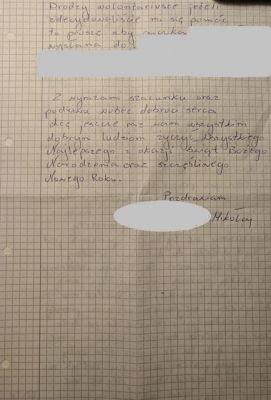 Drodzy wolontariusze jeżeli
zdecydowaliście mi się pomóc
to proszę aby
wysłana do
Z wyrazami szacunku oraz
podziwu wobec dobroci serca
chcę jeszcze raz Wam wszystkim
dobrym ludziom życzyć Wszystkiego
Najlepszego z okazji Świąt Bożego
Narodzenia oraz szczęśliwego
Nowego Roku.
Pozdrawiam
Mikołaj